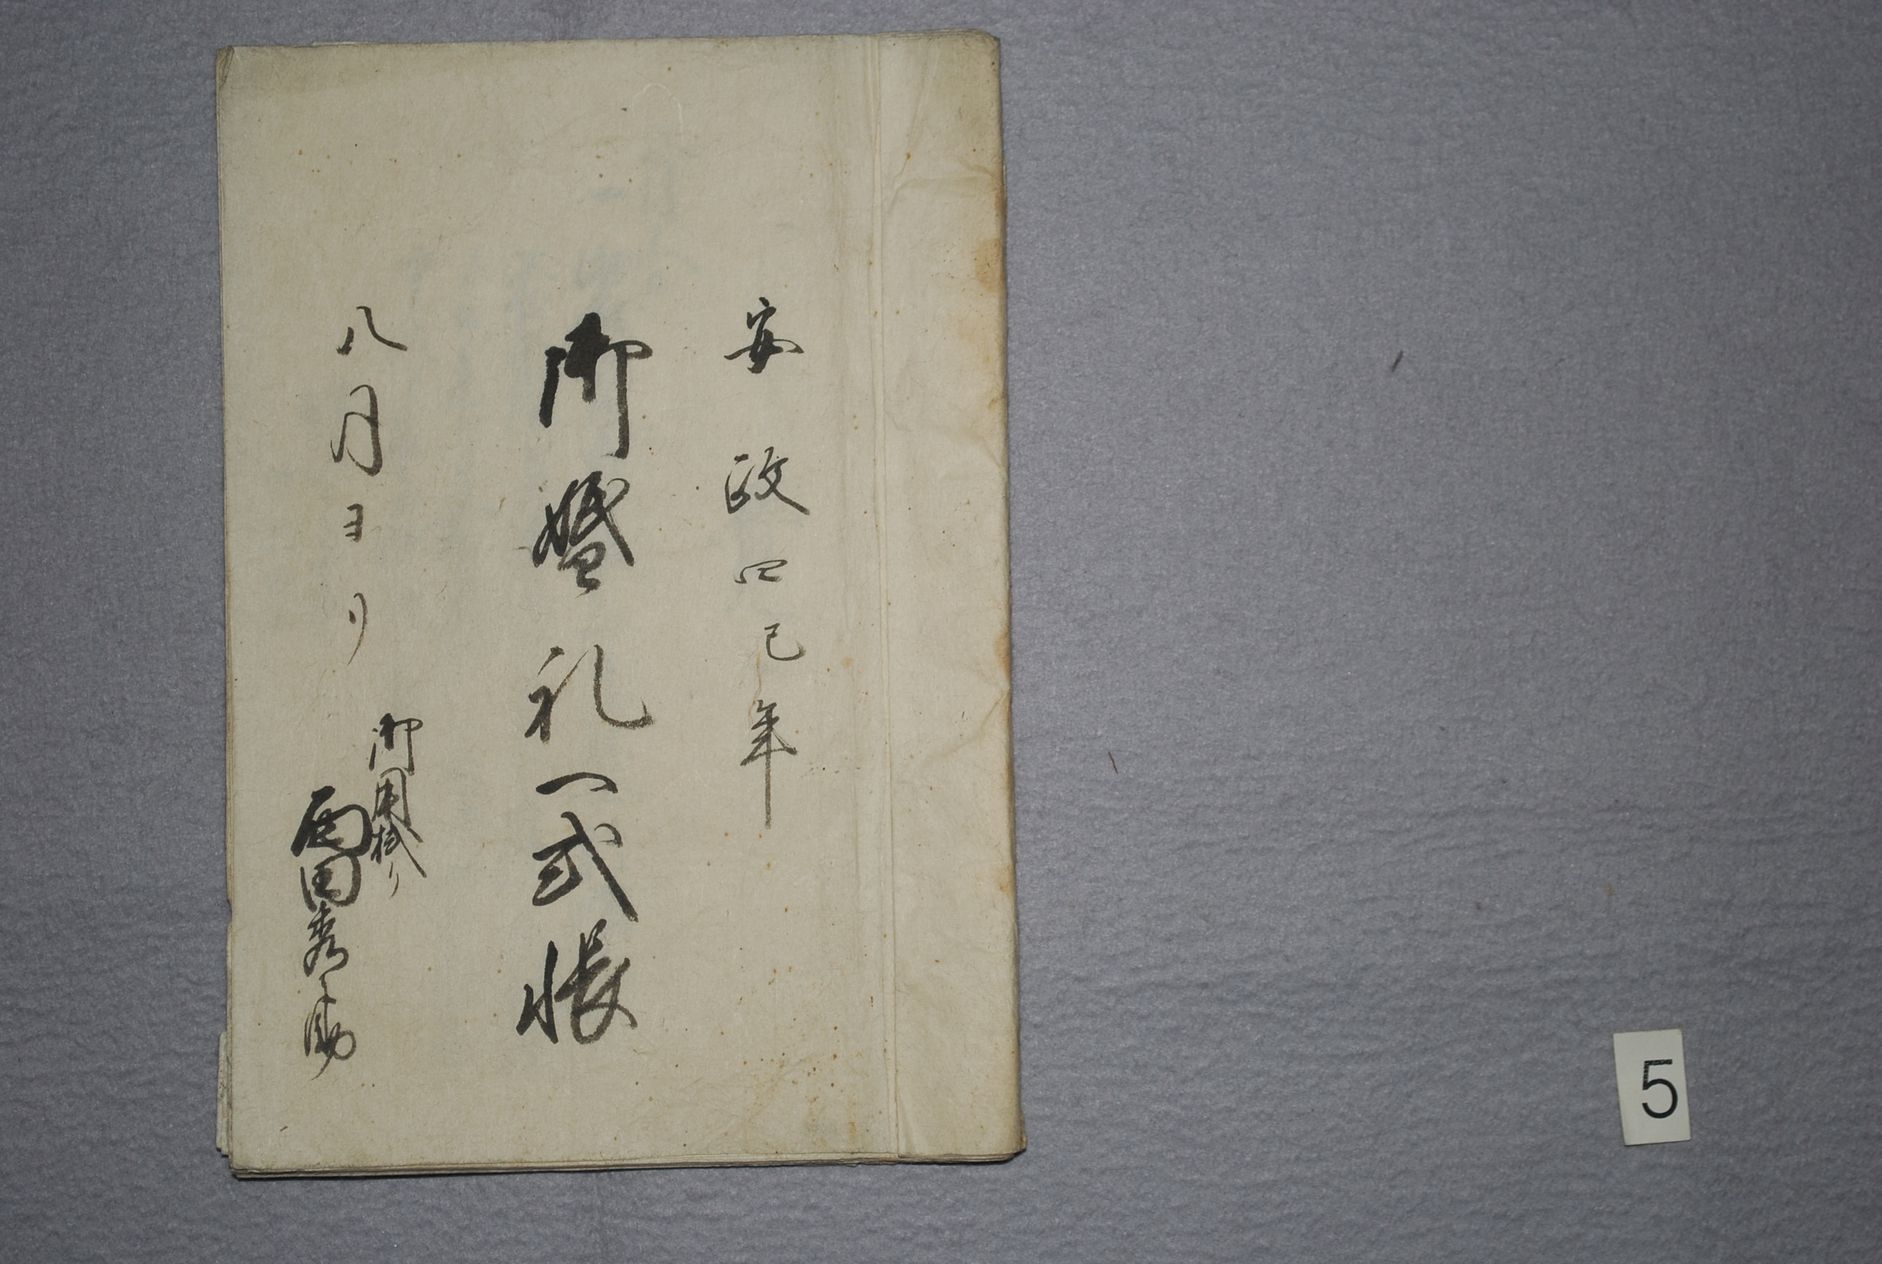 安政四巳年
御婚礼一式帳
八月ヨリ
御用掛り
西田秀助
5